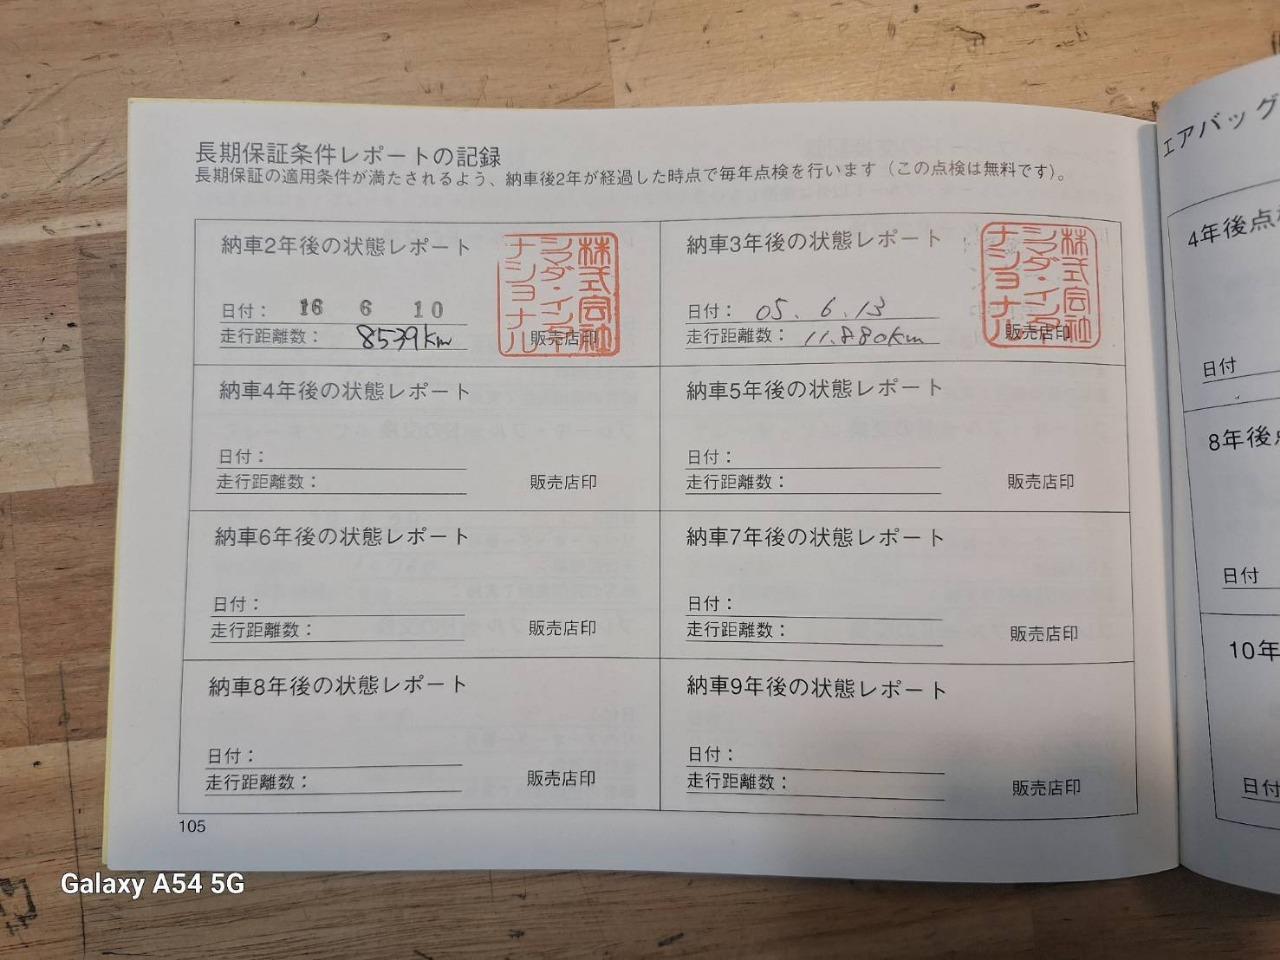 長期保証条件レポートの記録
長期保証の適用条件が満たされるよう、納車後2年が経過した時点で毎年点検を行います（この点検は無料です）。
納車2年後の状態レポート
日付： 16 6 10
走行距離数： 8539km
販売店印
株式会社
シマダ・インター
ナショナル
納車3年後の状態レポート
日付： 05. 6. 13
走行距離数： 11.880km
販売店印
株式会社
シマダ・インター
ナショナル
納車4年後の状態レポート
日付：
走行距離数：
販売店印
納車5年後の状態レポート
日付：
走行距離数：
販売店印
納車6年後の状態レポート
日付：
走行距離数：
販売店印
納車7年後の状態レポート
日付：
走行距離数：
販売店印
納車8年後の状態レポート
日付：
走行距離数：
販売店印
納車9年後の状態レポート
日付：
走行距離数：
販売店印
105
エアバッグ
4年後点
日付
8年後
日付
10年
日付
Galaxy A54 5G